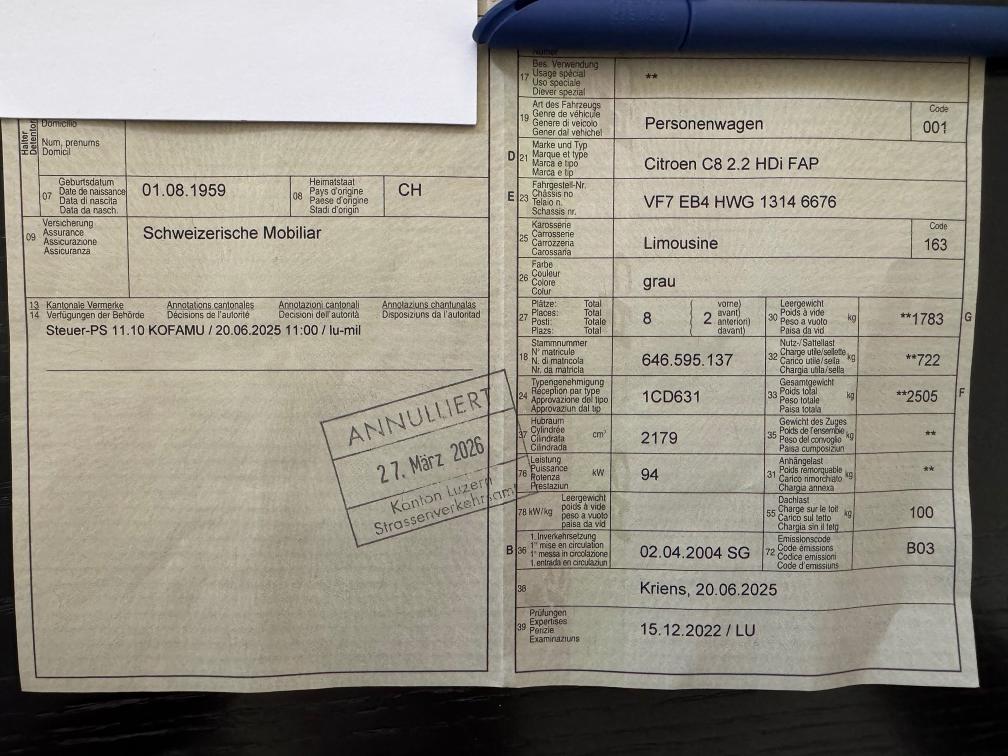 Domicilio
Halter
Detentor
Num, prenums
Domicil
07
Geburtsdatum
Date de naissance
Data di nascita
Data da nasch.
01.08.1959
08
Heimatstaat
Pays d'origine
Paese d'origine
Stadi d'origin
CH
09
Versicherung
Assurance
Assicurazione
Assicuranza
Schweizerische Mobiliar
13 Kantonale Vermerke Annotations cantonales Annotazioni cantonali Annotaziuns chantunalas
14 Verfügungen der Behörde Décisions de l'autorité Decisioni dell'autorità Disposiziuns da l'autoritad
Steuer-PS 11.10 KOFAMU / 20.06.2025 11:00 / lu-mil
ANNULLIERT
27. März 2026
Kanton Luzern
Strassenverkehrsamt
17
Bes. Verwendung
Usage spécial
Uso speciale
Diever spezial
**
19
Art des Fahrzeugs
Genre de véhicule
Genere di veicolo
Gener dal vehichel
Personenwagen
Code
001
D 21
Marke und Typ
Marque et type
Marca e tipo
Marca e tip
Citroen C8 2.2 HDi FAP
E 23
Fahrgestell-Nr.
Châssis no
Telaio n.
Schassis nr.
VF7 EB4 HWG 1314 6676
25
Karosserie
Carrosserie
Carrozzeria
Carossaria
Limousine
Code
163
26
Farbe
Couleur
Colore
Colur
grau
27
Plätze: Total
Places: Total
Posti: Totale
Plazs: Total
8
2
vorne)
avant)
anteriori)
davant)
30
Leergewicht
Poids à vide
Peso a vuoto
Paisa da vid
kg
**1783
G
18
Stammnummer
N° matricule
N. di matricola
Nr. da matricla
646.595.137
32
Nutz-/Sattellast
Charge utile/sellette
Carico utile/sella
Chargia utila/sella
kg
**722
24
Typengenehmigung
Réception par type
Approvazione del tipo
Approvaziun dal tip
1CD631
33
Gesamtgewicht
Poids total
Peso totale
Paisa totala
kg
**2505
F
37
Hubraum
Cylindrée
Cilindrata
Cilindrada
cm³
2179
35
Gewicht des Zuges
Poids de l'ensemble
Peso del convoglio
Paisa cumposiziun
kg
**
76
Leistung
Puissance
Potenza
Prestaziun
kW
94
31
Anhängelast
Poids remorquable
Carico rimorchiato
Chargia annexa
kg
**
78 kW/kg
Leergewicht
poids à vide
peso a vuoto
paisa da vid
55
Dachlast
Charge sur le toit
Carico sul tetto
Chargia sin il tetg
kg
100
B 36
1. Inverkehrsetzung
1re mise en circulation
1a messa in circolazione
1. entrada en circulaziun
02.04.2004 SG
72
Emissionscode
Code émissions
Codice emissioni
Code d'emissiuns
B03
38
Kriens, 20.06.2025
39
Prüfungen
Expertises
Perizie
Examinaziuns
15.12.2022 / LU